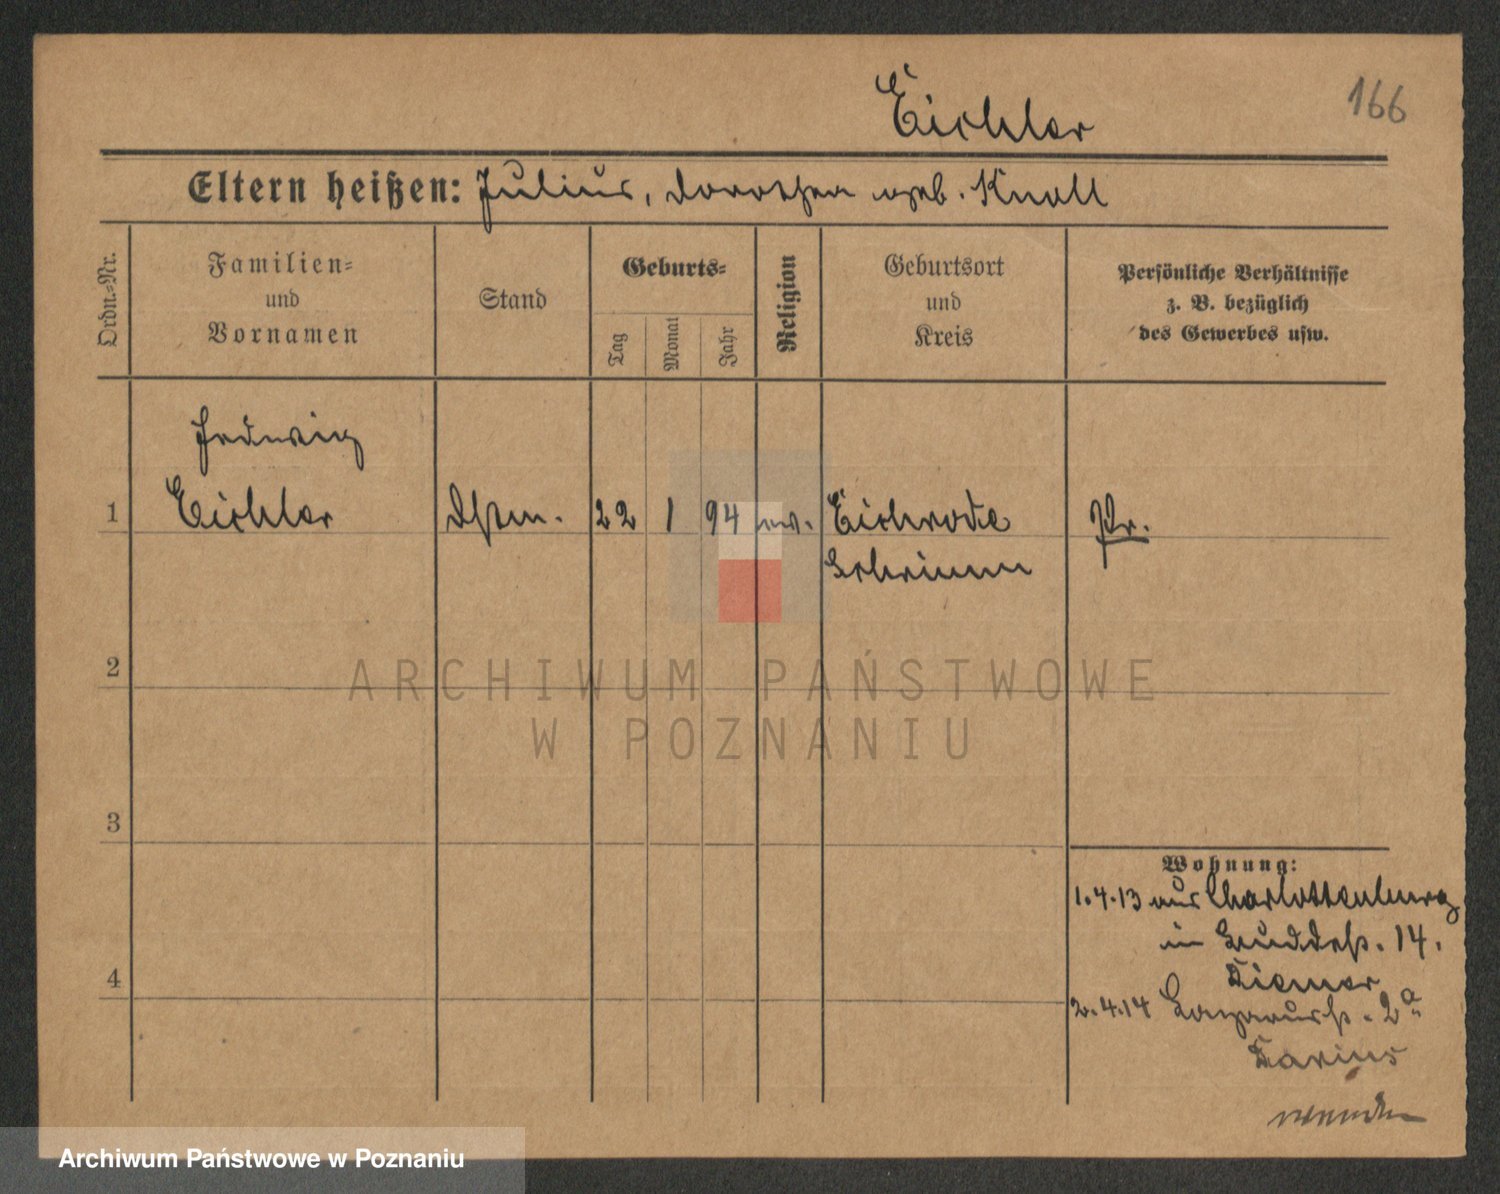 Eichler
166
Eltern heißen: Julius, Dorothea geb. Knoll
Ordn.-Nr.
Familien-
und
Vornamen
Stand
Geburts-
Tag
Monat
Jahr
Religion
Geburtsort
und
Kreis
Persönliche Verhältnisse
z. B. bezüglich
des Gewerbes usw.
Hedwig
1 Eichler 22 1 94 ev. Eichrode Pr.
2
3
4
Wohnung:
1.4.13 aus Charlottenburg
in 14.
2.4.14 Lazarusstr. 2a
wenden
ARCHIWUM PAŃSTWOWE
W POZNANIU
Archiwum Państwowe w Poznaniu